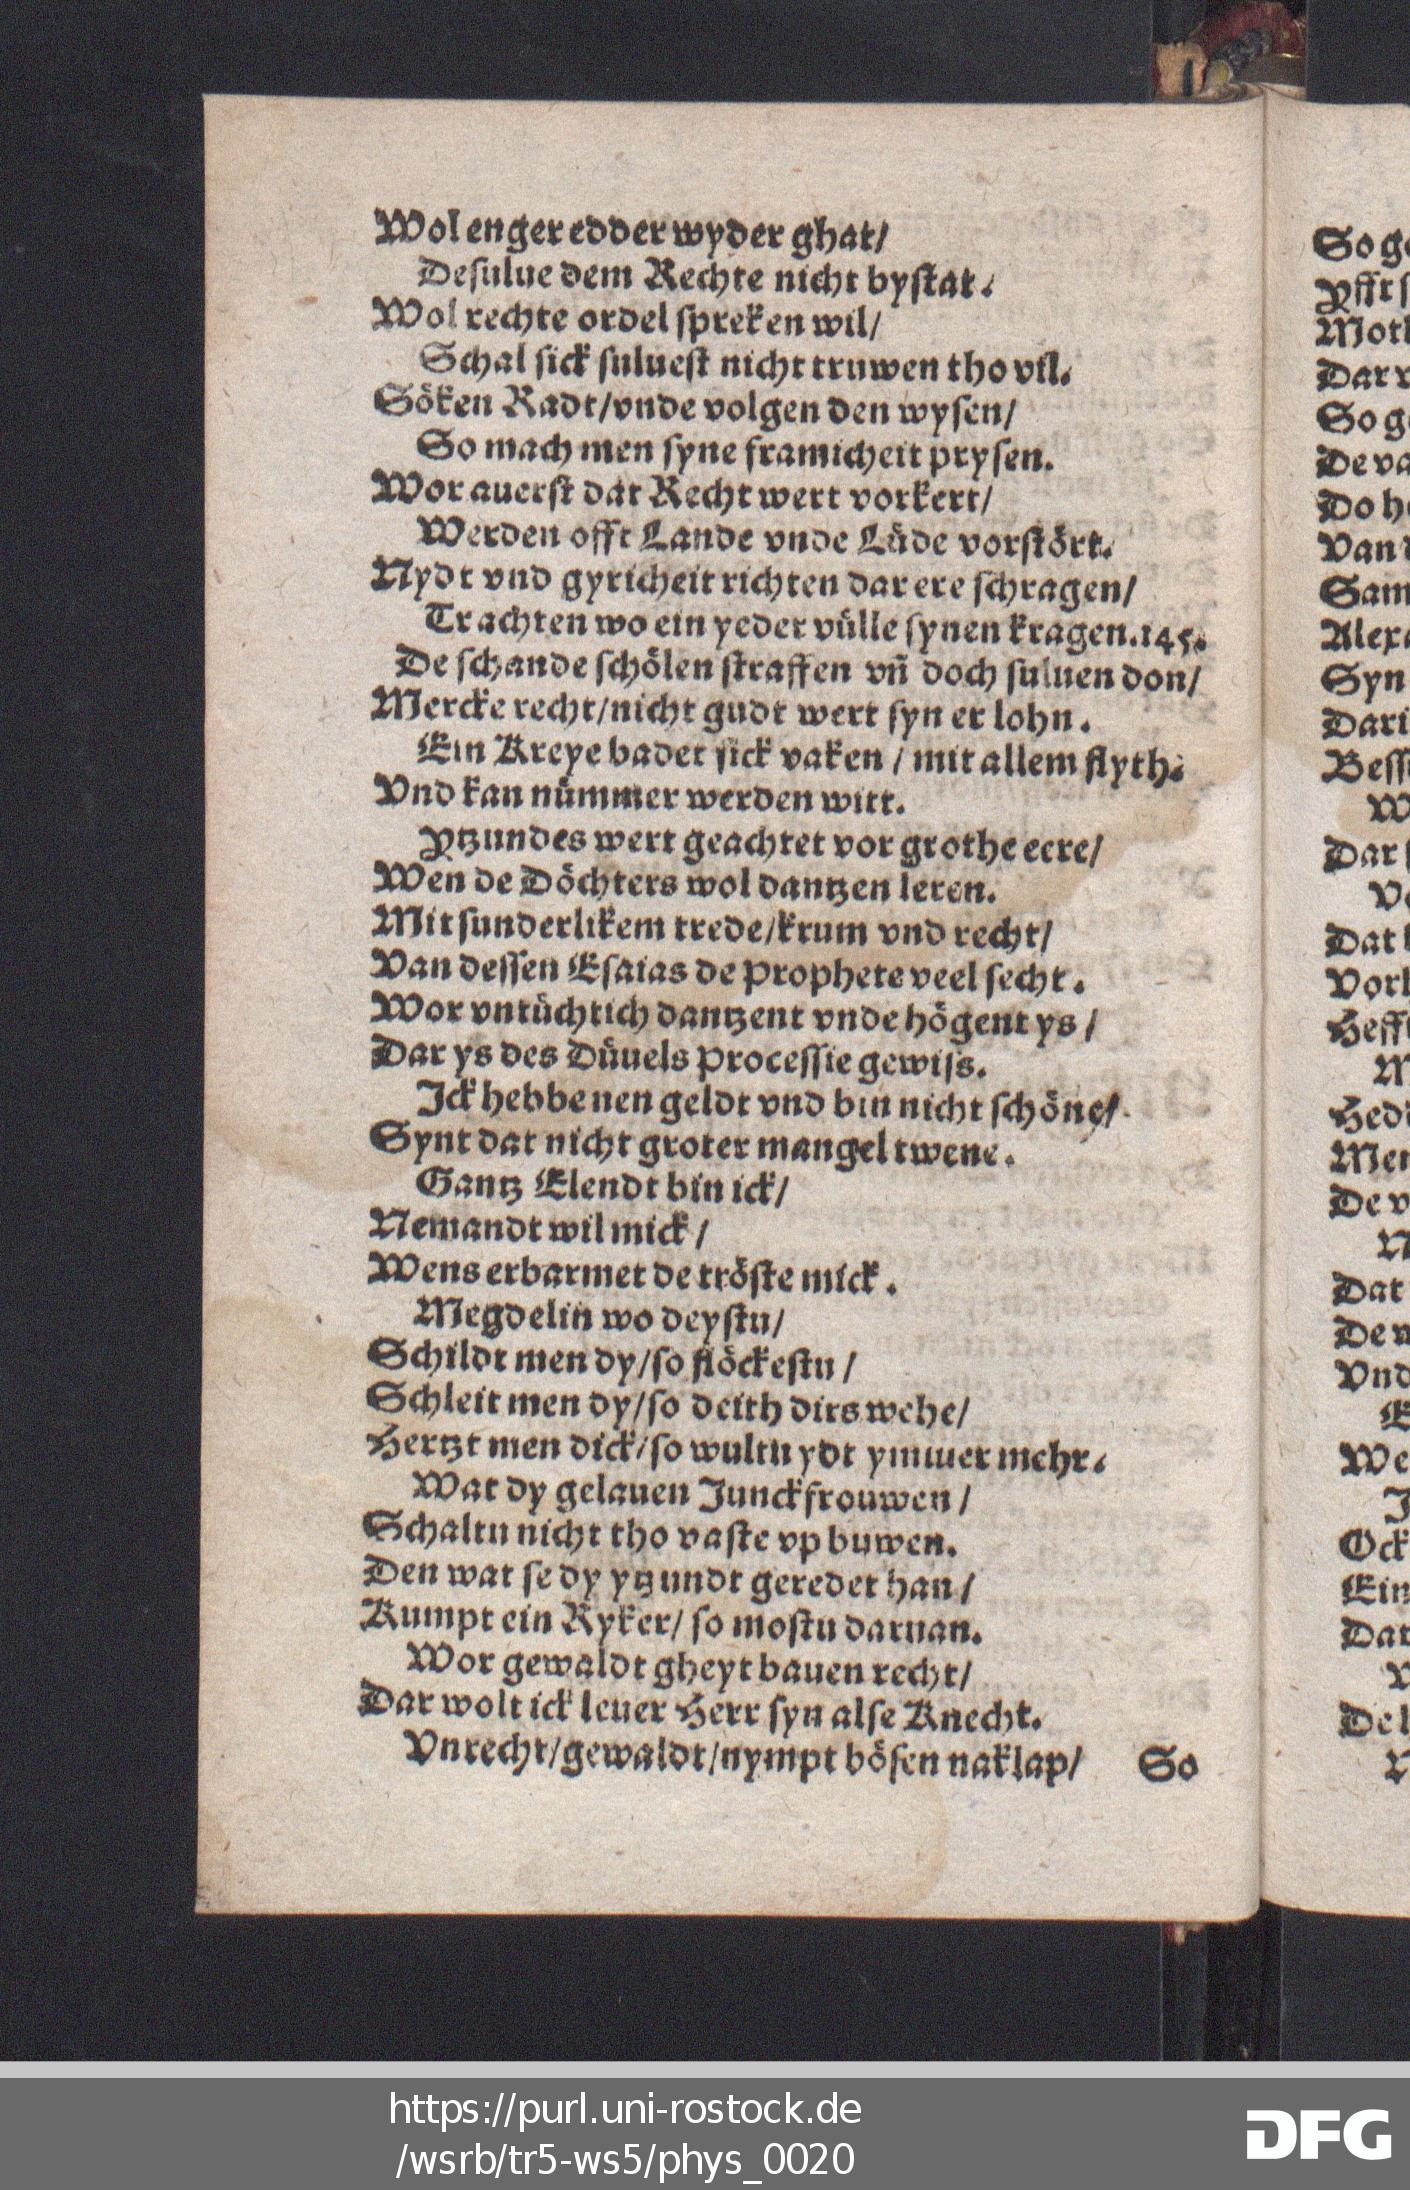 Wol enger edder wyder ghat/
Desulue dem Rechte nicht bystat.
Wol rechte ordel spreken wil/
Schal sick suluest nicht truwen tho vil.
Söken Radt/vnde volgen den wysen/
So mach men syne framicheit prysen.
Wor auerst dat Recht wert vorkert/
Werden offt Lande vnde Lüde vorstört.
Nydt vnd gyricheit richten dar ere schragen/
Trachten wo ein yeder vülle synen kragen.145.
De schande schölen straffen vñ doch suluen don/
Mercke recht/nicht gudt wert syn er lohn.
Ein Kreye badet sick vaken / mit allem flyth.
Vnd kan nümmer werden witt.
Ytzundes wert geachtet vor grothe eere/
Wen de Döchters wol dantzen leren.
Mit sunderlikem trede/krum vnd recht/
Van dessen Esaias de Prophete veel secht.
Wor vntüchtich dantzent vnde högent ys /
Dar ys des Düuels Processie gewiss.
Ick hebbe nen geldt vnd bin nicht schöne/
Synt dat nicht groter mangel twene.
Gantz Elendt bin ick/
Nemandt wil mick /
Wens erbarmet de tröste mick.
Megdelin wo deystu/
Schildt men dy/so flöckestu /
Schleit men dy/so deith dirs wehe/
Hertzt men dick/so wultu ydt ymmer mehr.
Wat dy gelauen Junckfrouwen /
Schaltu nicht tho vaste vp buwen.
Den wat se dy ytzundt geredet han /
Kumpt ein Ryker/ so mostu daruan.
Wor gewaldt gheyt bauen recht/
Dar wolt ick leuer Herr syn alse Knecht.
Vnrecht/gewaldt/nympt bösen naklap/ So
So
Yfft
Dar
So
De
Do
Van
Syn
Dar
Dat
De
Vnd
We
Ock
https://purl.uni-rostock.de
/wsrb/tr5-ws5/phys_0020
DFG